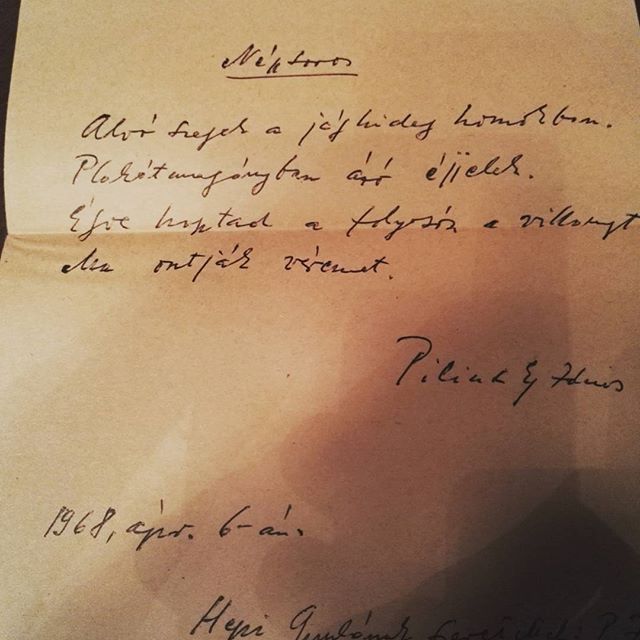 Négysoros
Alvó szegek a jéghideg homokban.
Plakátmagányban ázó éjjelek.
Égve hagytad a folyosón a villanyt
Ma ontják véremet.
Pilinszky János
1968, ápr. 6-án.